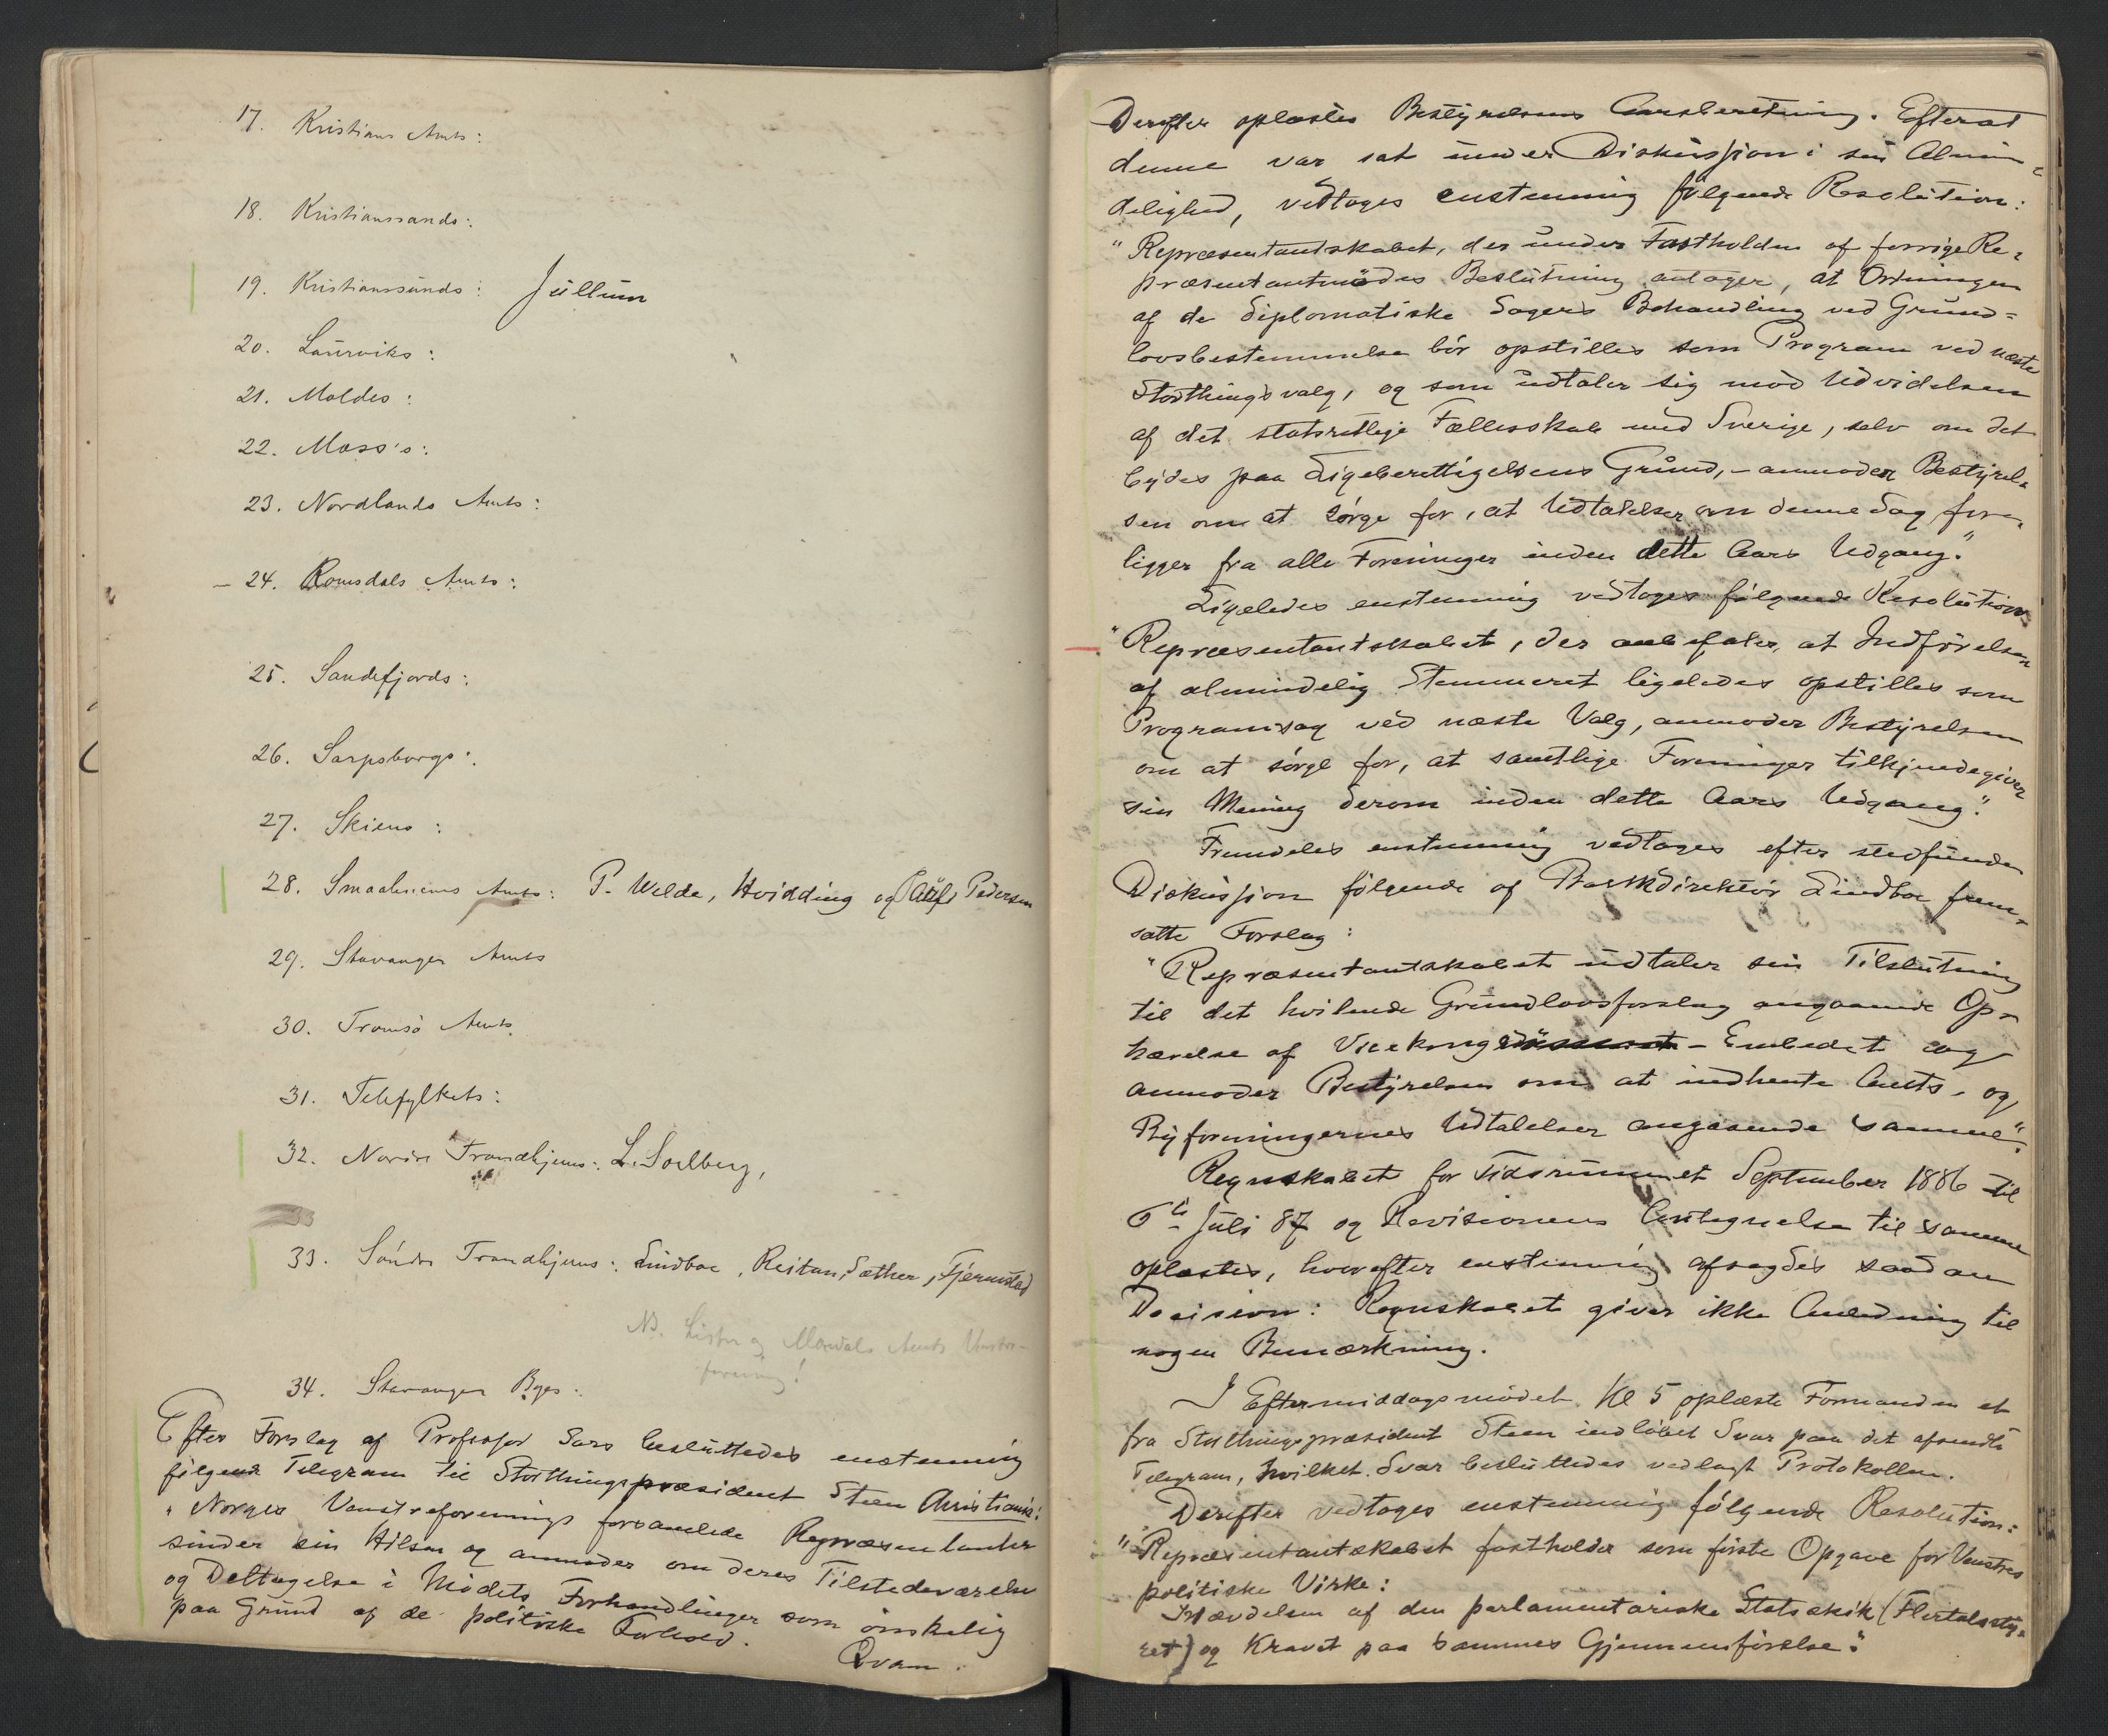 17. Kristians Amts:
18. Kristianssands:
19. Kristianssunds: Jullum
20. Laurviks:
21. Moldes:
22. Moss's:
23. Nordlands Amts:
– 24. Romsdals Amts:
25. Sandefjords:
26. Sarpsborgs:
27. Skiens:
28. Smaalenenes Amts: P. Welde, Hvidding og Pedersen
29. Stavanger Amts
30. Tromsö Amts
31. Telefylkets:
32. Nordre Trondhjems: L. Soelberg,
33
33. Söndre Trondhjems: Lindboe, Reitan, Sæther, Fjermstad
NB. Lister og Mandals Amts Venstre-
forening!
34. Stavanger Byes:
Efter Forslag af Professor Sars besluttedes enstemmig
følgende Telegram til Storthingspræsident Steen Christiania:
"Norges Venstreforenings forsamlede Repræsentanter
sender sin Hilsen og anmoder om deres Tilstedeværelse
og Deltagelse i Mödets Forhandlinger som önskelig
paa Grund af de politiske Forhold.
Qvam.
Derefter oplæstes Bestyrelsens Aarsberetning. Efterat
denne var sat under Diskussion i sin Almin-
delighed, vedtoges enstemmig fölgende Resolution:
"Repræsentantskabet, der under Fastholden af forrige Re-
præsentantmödes Beslutning antager, at Ordningen
af de diplomatiske Sagers Behandling ved Grund-
lovsbestemmelse bör opstilles som Program ved næste
Storthingsvalg, og som udtaler sig mod Udvidelsen
af det statsretlige Fællesskab med Sverige, selv om det
bydes paa Ligeberettigelsens Grund, – anmoder Bestyrel-
sen om at sörge for, at Udtalelser om denne Sag fore-
ligger fra alle Foreninger inden dette Aars Udgang."
Ligeledes enstemmig vedtoges fölgende Resolution:
"Repræsentantskabet, der anbefaler, at Indförelsen
af almindelig Stemmeret ligeledes opstilles som
Programsag ved næste Valg, anmoder Bestyrelsen
om at sörge for, at samtlige Foreninger tilkjendegiver
sin Mening derom inden dette Aars Udgang."
Fremdeles enstemmig vedtoges efter stedfunden
Diskussion fölgende af Bankdirektör Lindboe frem-
satte Forslag:
"Repræsentantskabet udtaler sin Tilslutning
til det hvilende Grundlovsforslag angaaende Op-
hævelse af Vicekonge-Embedet og
anmoder Bestyrelsen om at indhente Amts- og
Byforeningernes Udtalelser angaaende samme".
Regnskabet for Tidsrummet September 1886 til
Juli 87 og Revisionens Antegnelse til samme
oplæstes, hvorefter enstemmig afsagdes saadan
Decision: Regnskabet giver ikke Anledning til
nogen Bemærkning.
I Eftermiddagsmödet Kl 5 oplæste Formanden et
fra Storthingspræsident Steen indlöbet Svar paa det afsendte
Telegram, hvilket Svar besluttedes vedlagt Protokollen.
Derefter vedtoges enstemmig fölgende Resolution:
"Repræsentantskabet fastholder som förste Opgave for Venstres
politiske Virke:
Hævdelsen af den parlamentariske Statsskik (Flertalssty-
ret) og Kravet paa sammes Gjennemförelse."